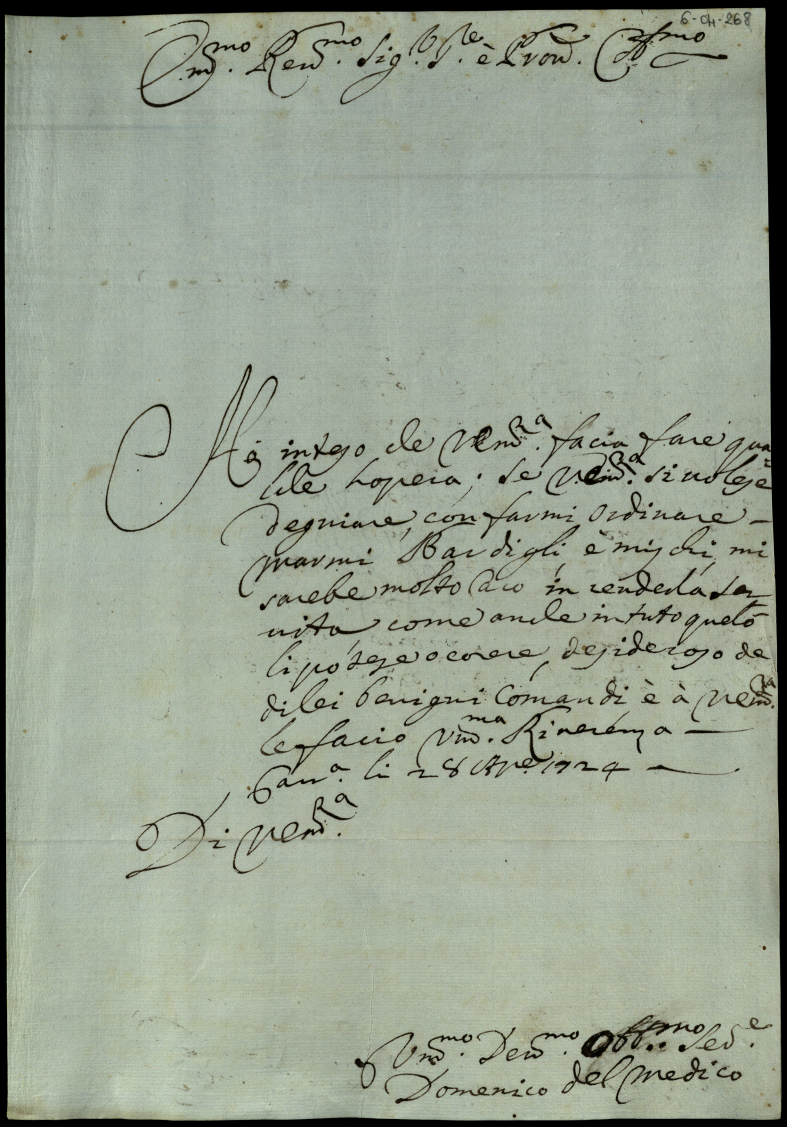 6-04-268
Ill.mo Rev.mo Sig.r P.re è Pron. Oss.mo
Hò inteso che V.em.Ra facia fare qua
lche hopera; se V.em.Ra si volese
degniare, con farmi ordinare –
marmi Bardigli, è mischi, mi
sarebe molto caro in renderla ser
vita come anche in tuto quelo
li potese ocorere, desideroso de
di lei benigni Comandi è à V.em.Ra
le facio um.ma Riverenza –
Carr.a li 28 8bre 1724 –
Di V.em.Ra
Um.mo Dev.mo Obb.mo Ser.e
Domenico del Medico